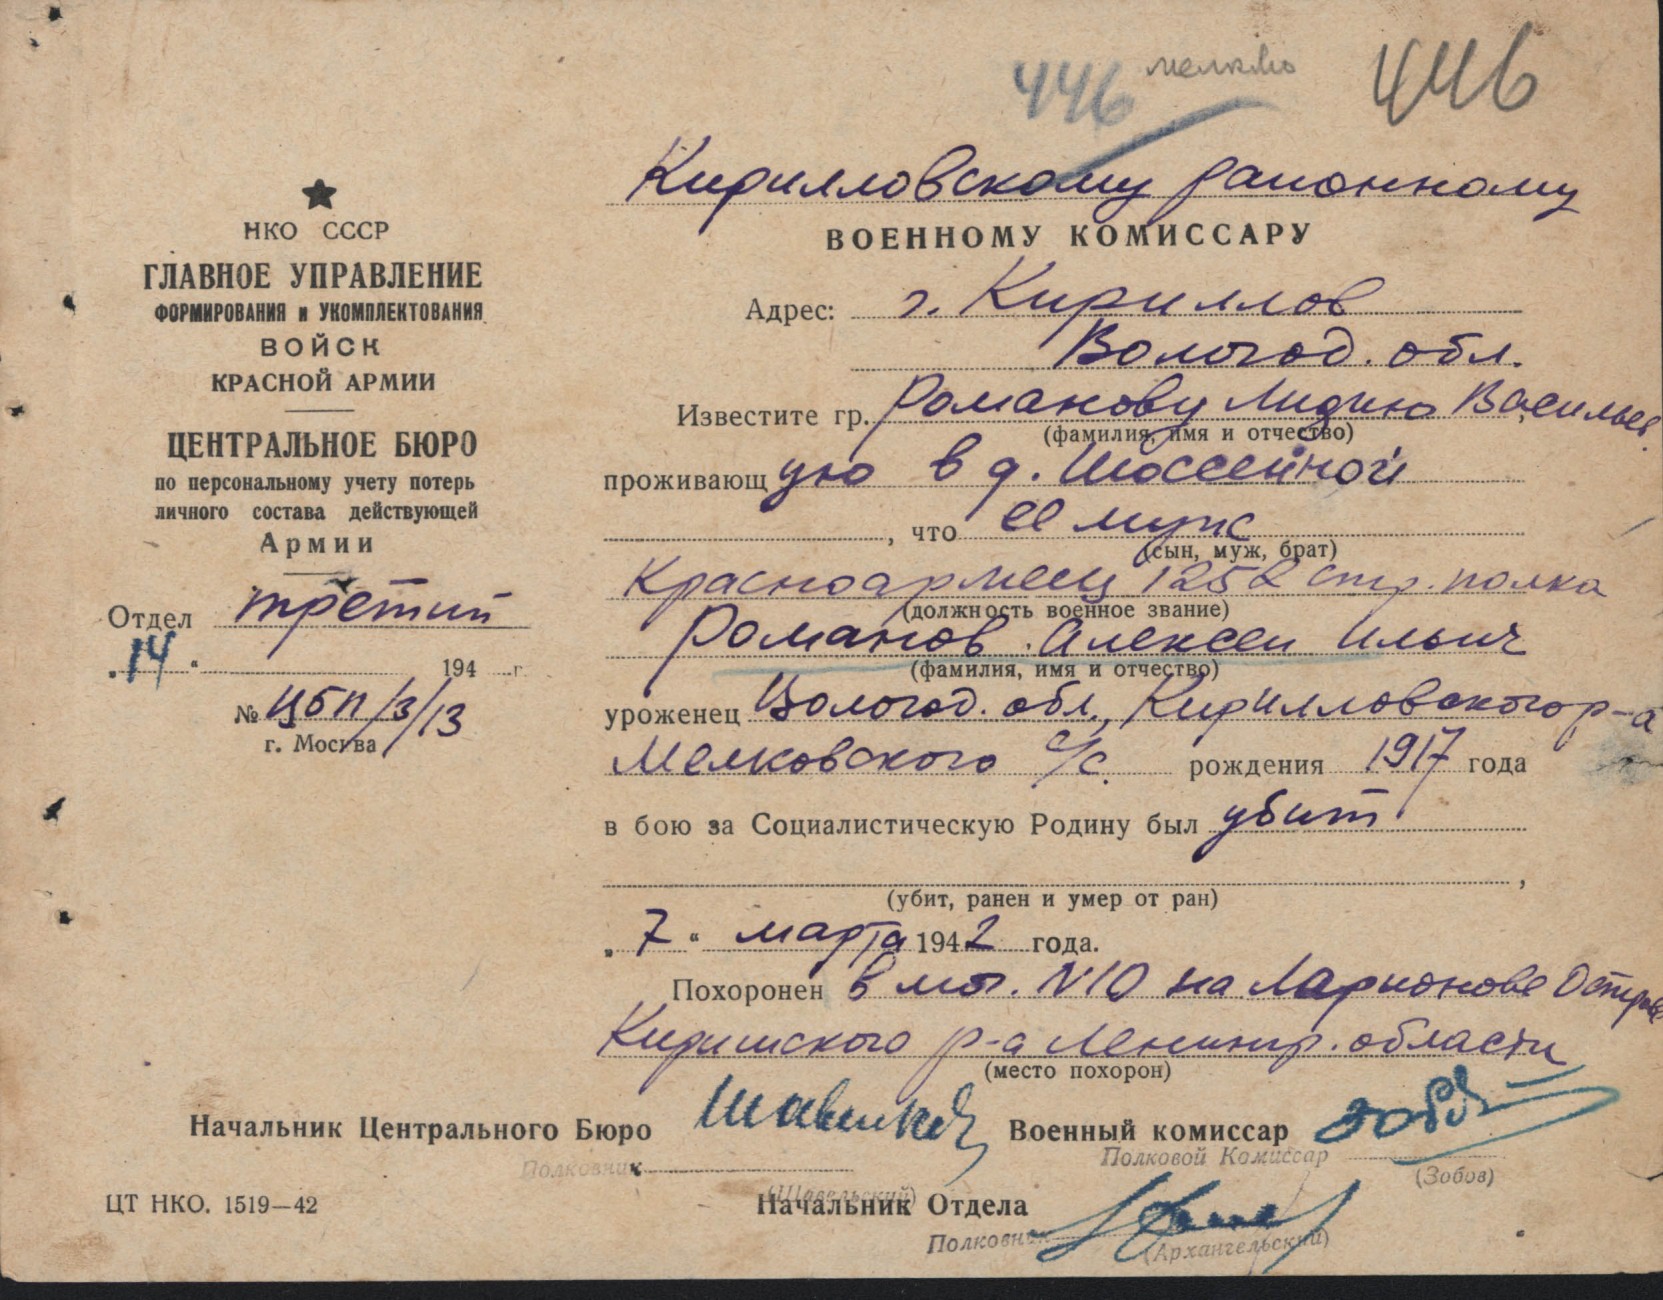 446 446
★
НКО СССР
ГЛАВНОЕ УПРАВЛЕНИЕ
ФОРМИРОВАНИЯ и УКОМПЛЕКТОВАНИЯ
ВОЙСК
КРАСНОЙ АРМИИ
ЦЕНТРАЛЬНОЕ БЮРО
по персональному учету потерь
личного состава действующей
Армии
Отдел третий
„14“ 194 г.
№ ЦБП/3/13
г. Москва
Кирилловскому районному
ВОЕННОМУ КОМИССАРУ
Адрес: г. Кириллов
Вологод. обл.
Известите гр. Романову Лидию Васильев
(фамилия, имя и отчество)
проживающ ую в д. Шоссейной
, что ее муж
(сын, муж, брат)
Красноармеец 1252 стр. полка
(должность военное звание)
Романов Алексей Ильич
(фамилия, имя и отчество)
уроженец Вологод. обл., Кирилловского р-а
Мелковского с/с. рождения 1917 года
в бою за Социалистическую Родину был убит
,
(убит, ранен и умер от ран)
„7“ марта 1942 года.
Похоронен в мог. №10 на Ларионове Острове
Киришского р-а Ленингр. области
(место похорон)
Начальник Центрального Бюро Военный комиссар
Полковник Полковой Комиссар
(Шавельский) (Зобов)
Начальник Отдела
Полковник (Архангельский)
ЦТ НКО. 1519—42